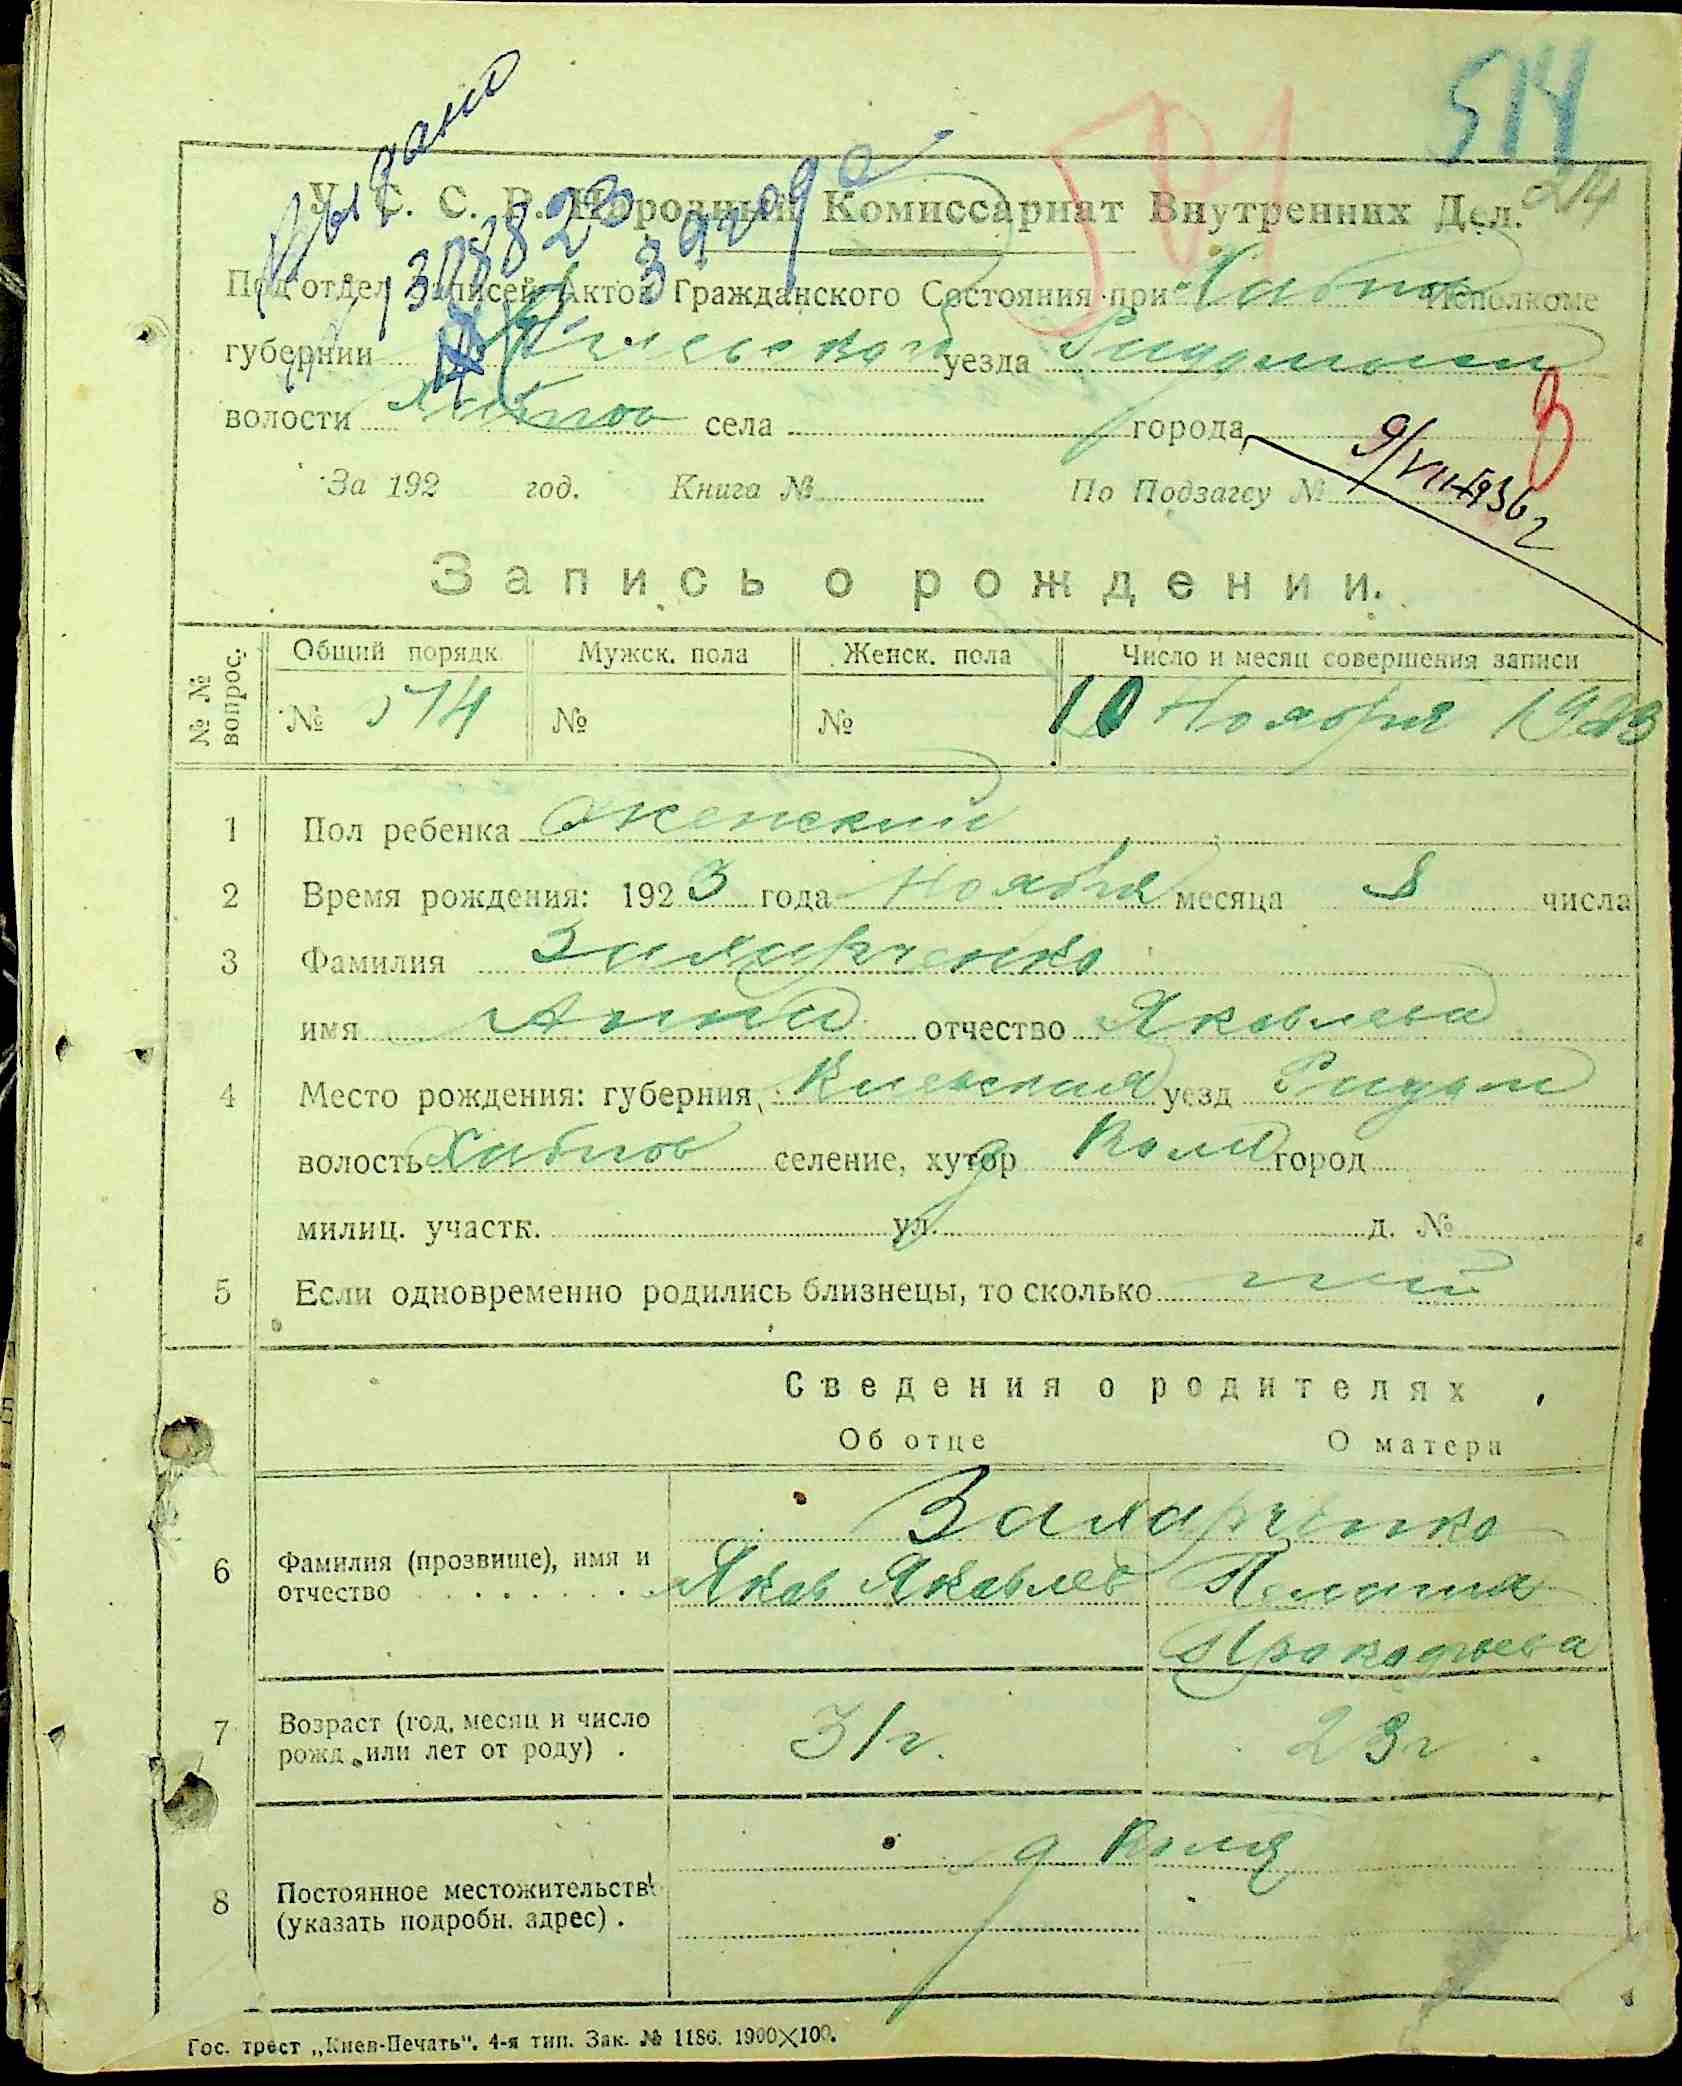 514
501
214
Выдано
У. С. С. Р. Народный Комиссариат Внутренних Дел.
Подотдел Записей Актов Гражданского Состояния при Хабно Исполкоме
губернии Киевской уезда Радомысл
волости Хабное села города
3
9/VII-1936 г
За 192 год. Книга № По Подзагсу №
Запись о рождении.
№ № вопрос.
Общий порядк Мужск. пола Женск. пола Число и месяц совершения записи
№ 514 № № 10 Ноября 1923
1 Пол ребенка Женский
2 Время рождения: 1923 года Ноября месяца 8 числа
3 Фамилия Заларченко
имя Анна отчество Яковлева
4 Место рождения: губерния Киевская уезд Радом
волость Хабное селение, хутор д город
милиц. участк. ул. д. №
5 Если одновременно родились близнецы, то сколько
Сведения о родителях
Об отце О матери
Заларченко
6 Фамилия (прозвище), имя и отчество Яков Яковлев Пелагия
Прокофьева
7 Возраст (год, месяц и число рожд. или лет от роду) . 31 г. 23 г
д
8 Постоянное местожительств (указать подробн. адрес) .
Гос. трест „Киев-Печать". 4-я тип. Зак. № 1186. 1900×100.